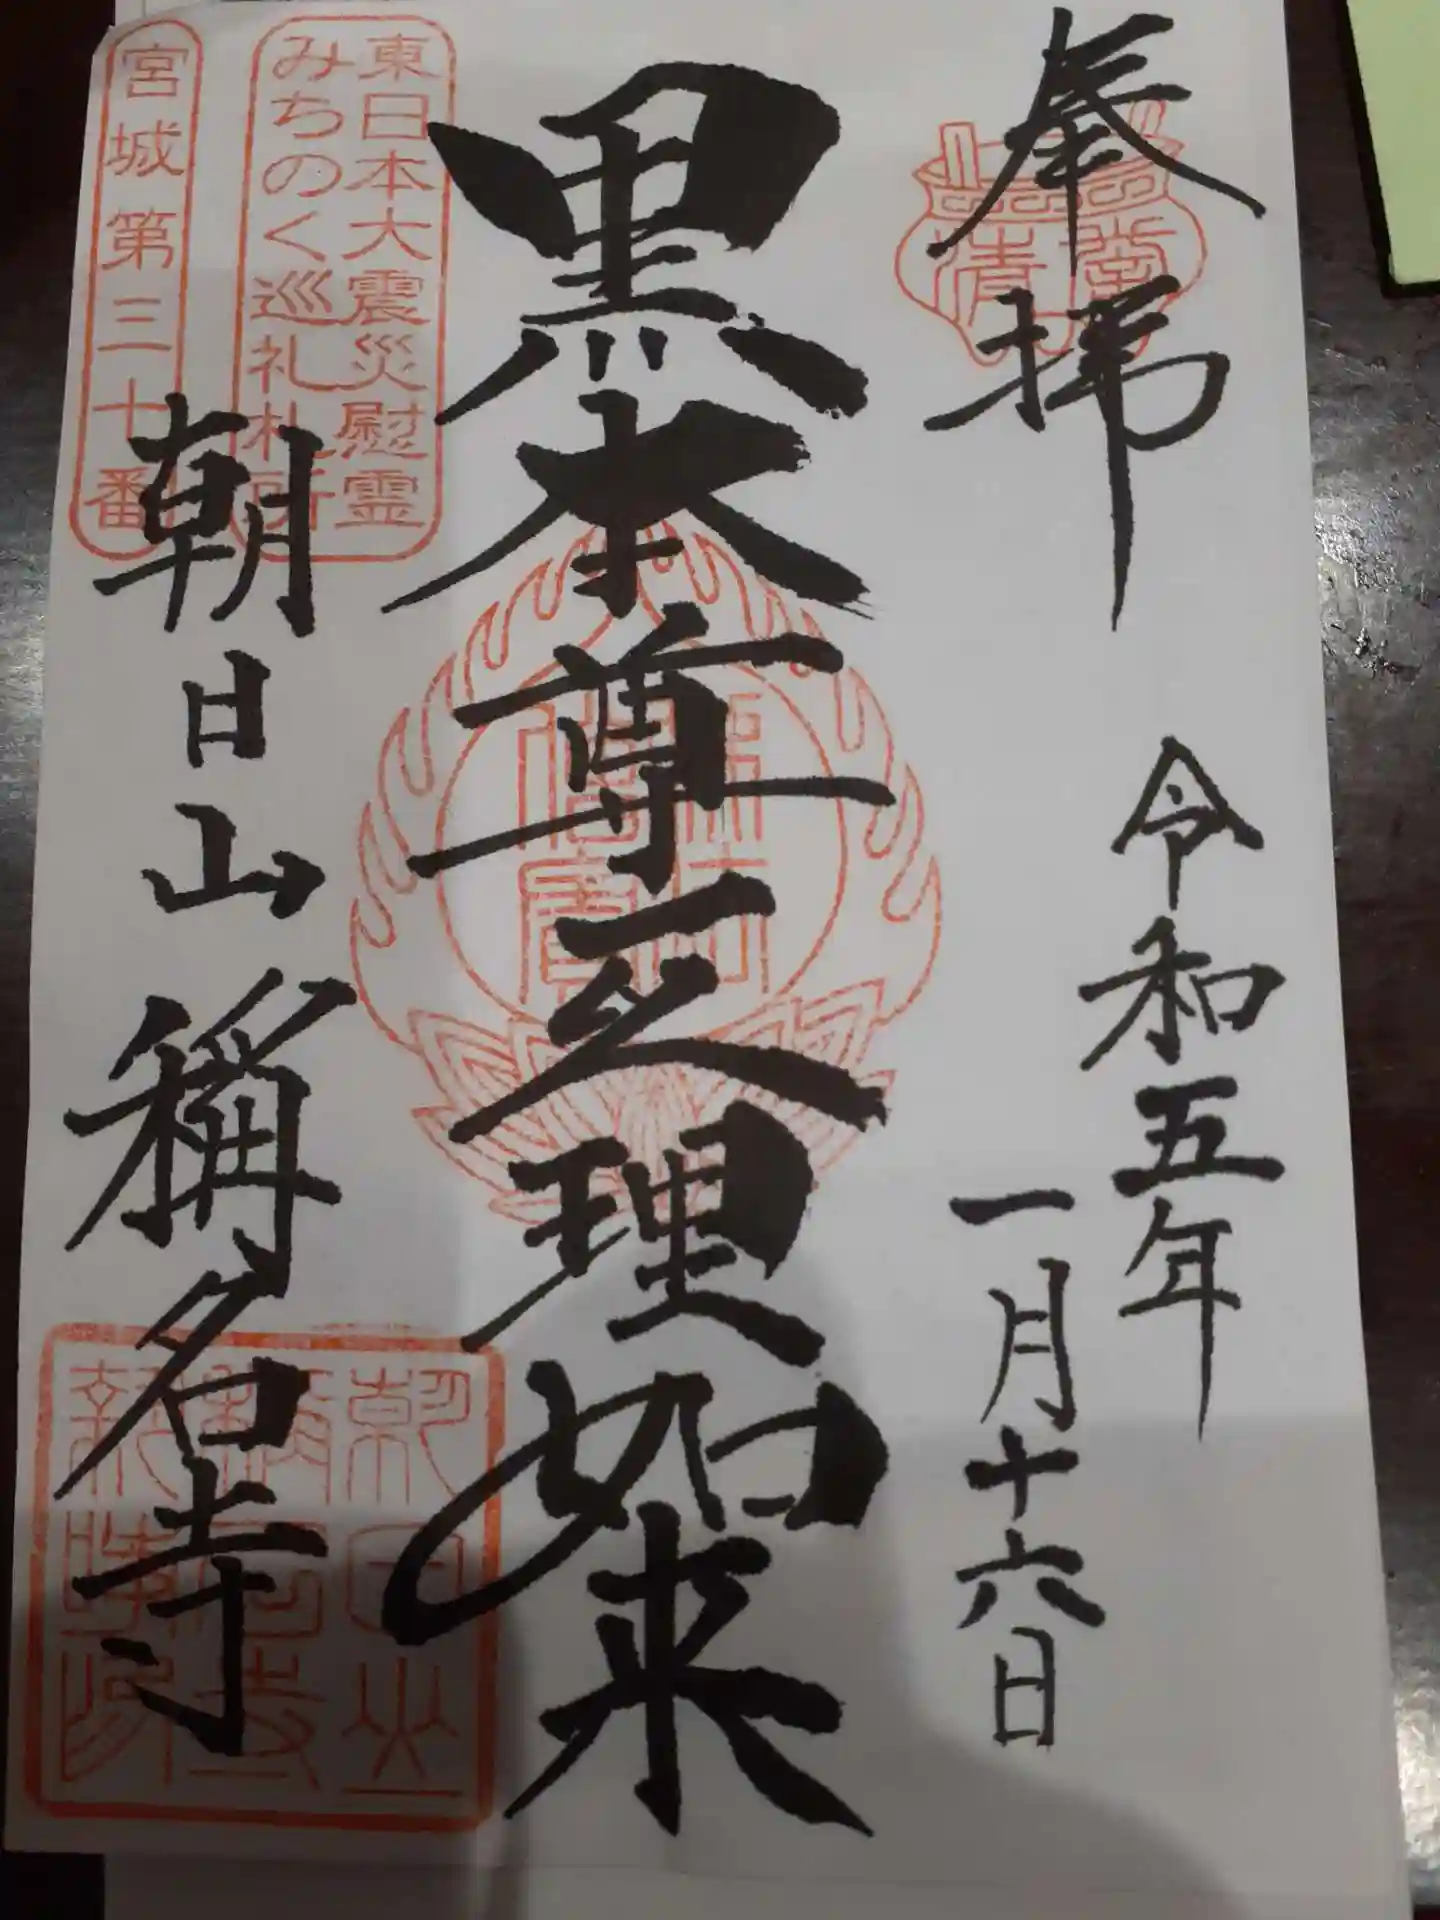 奉拝
令和五年
一月十六日
黒本尊立理如来
東日本大震災慰霊
みちのく巡礼札所
宮城第三十番
朝日山稱名寺